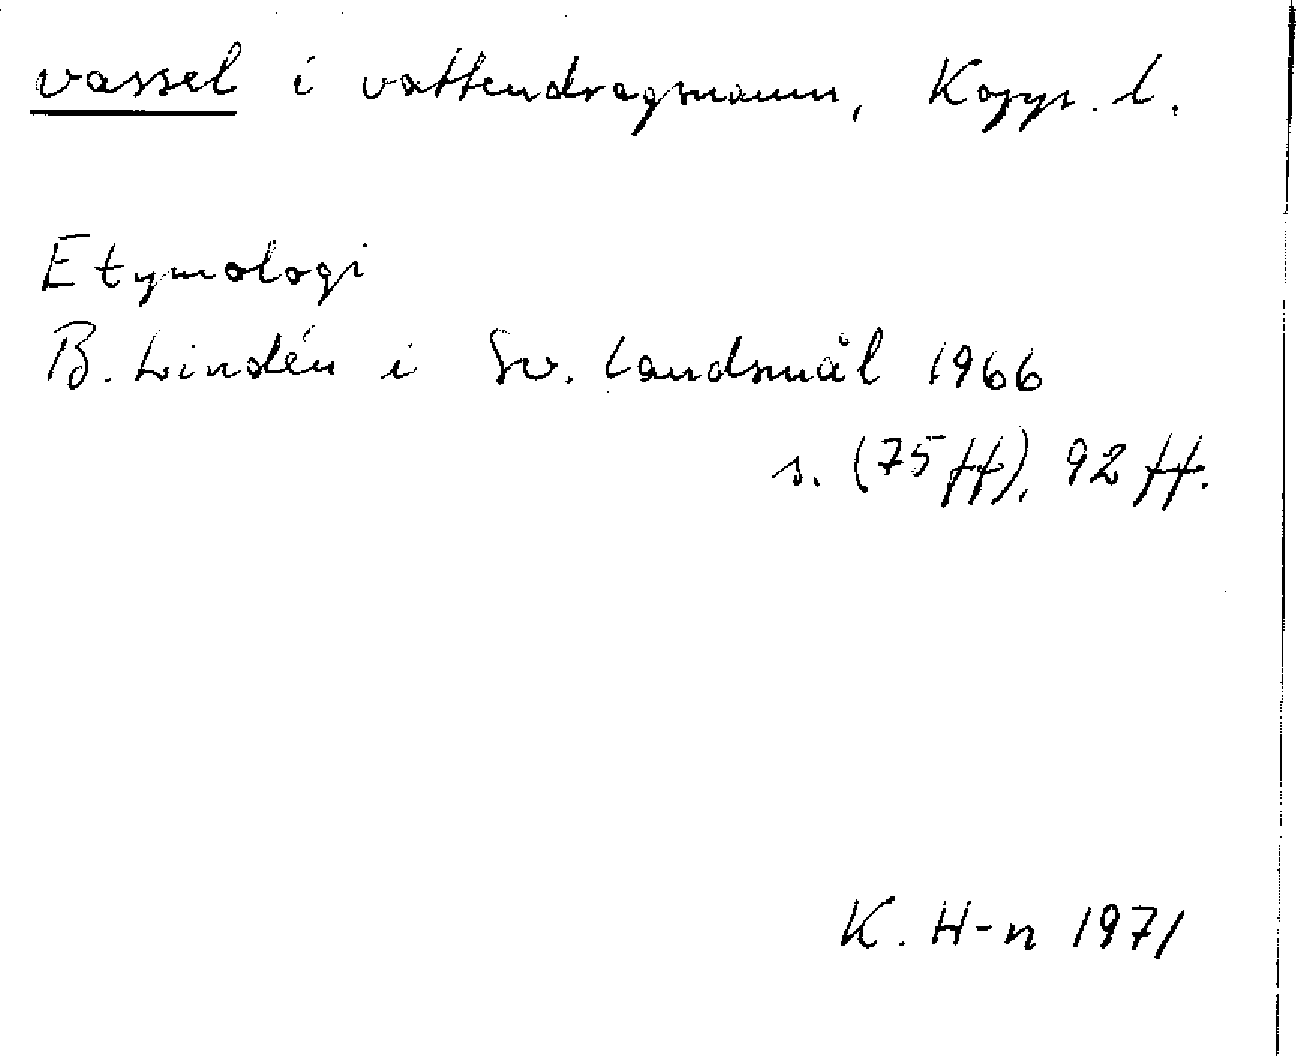 vassel i vattendragsnamn, Kopp. l.
Etymologi
B. Lindén i Sv. Landsmål 1966
s. (75 ff), 92 ff.
K. H-n 1971